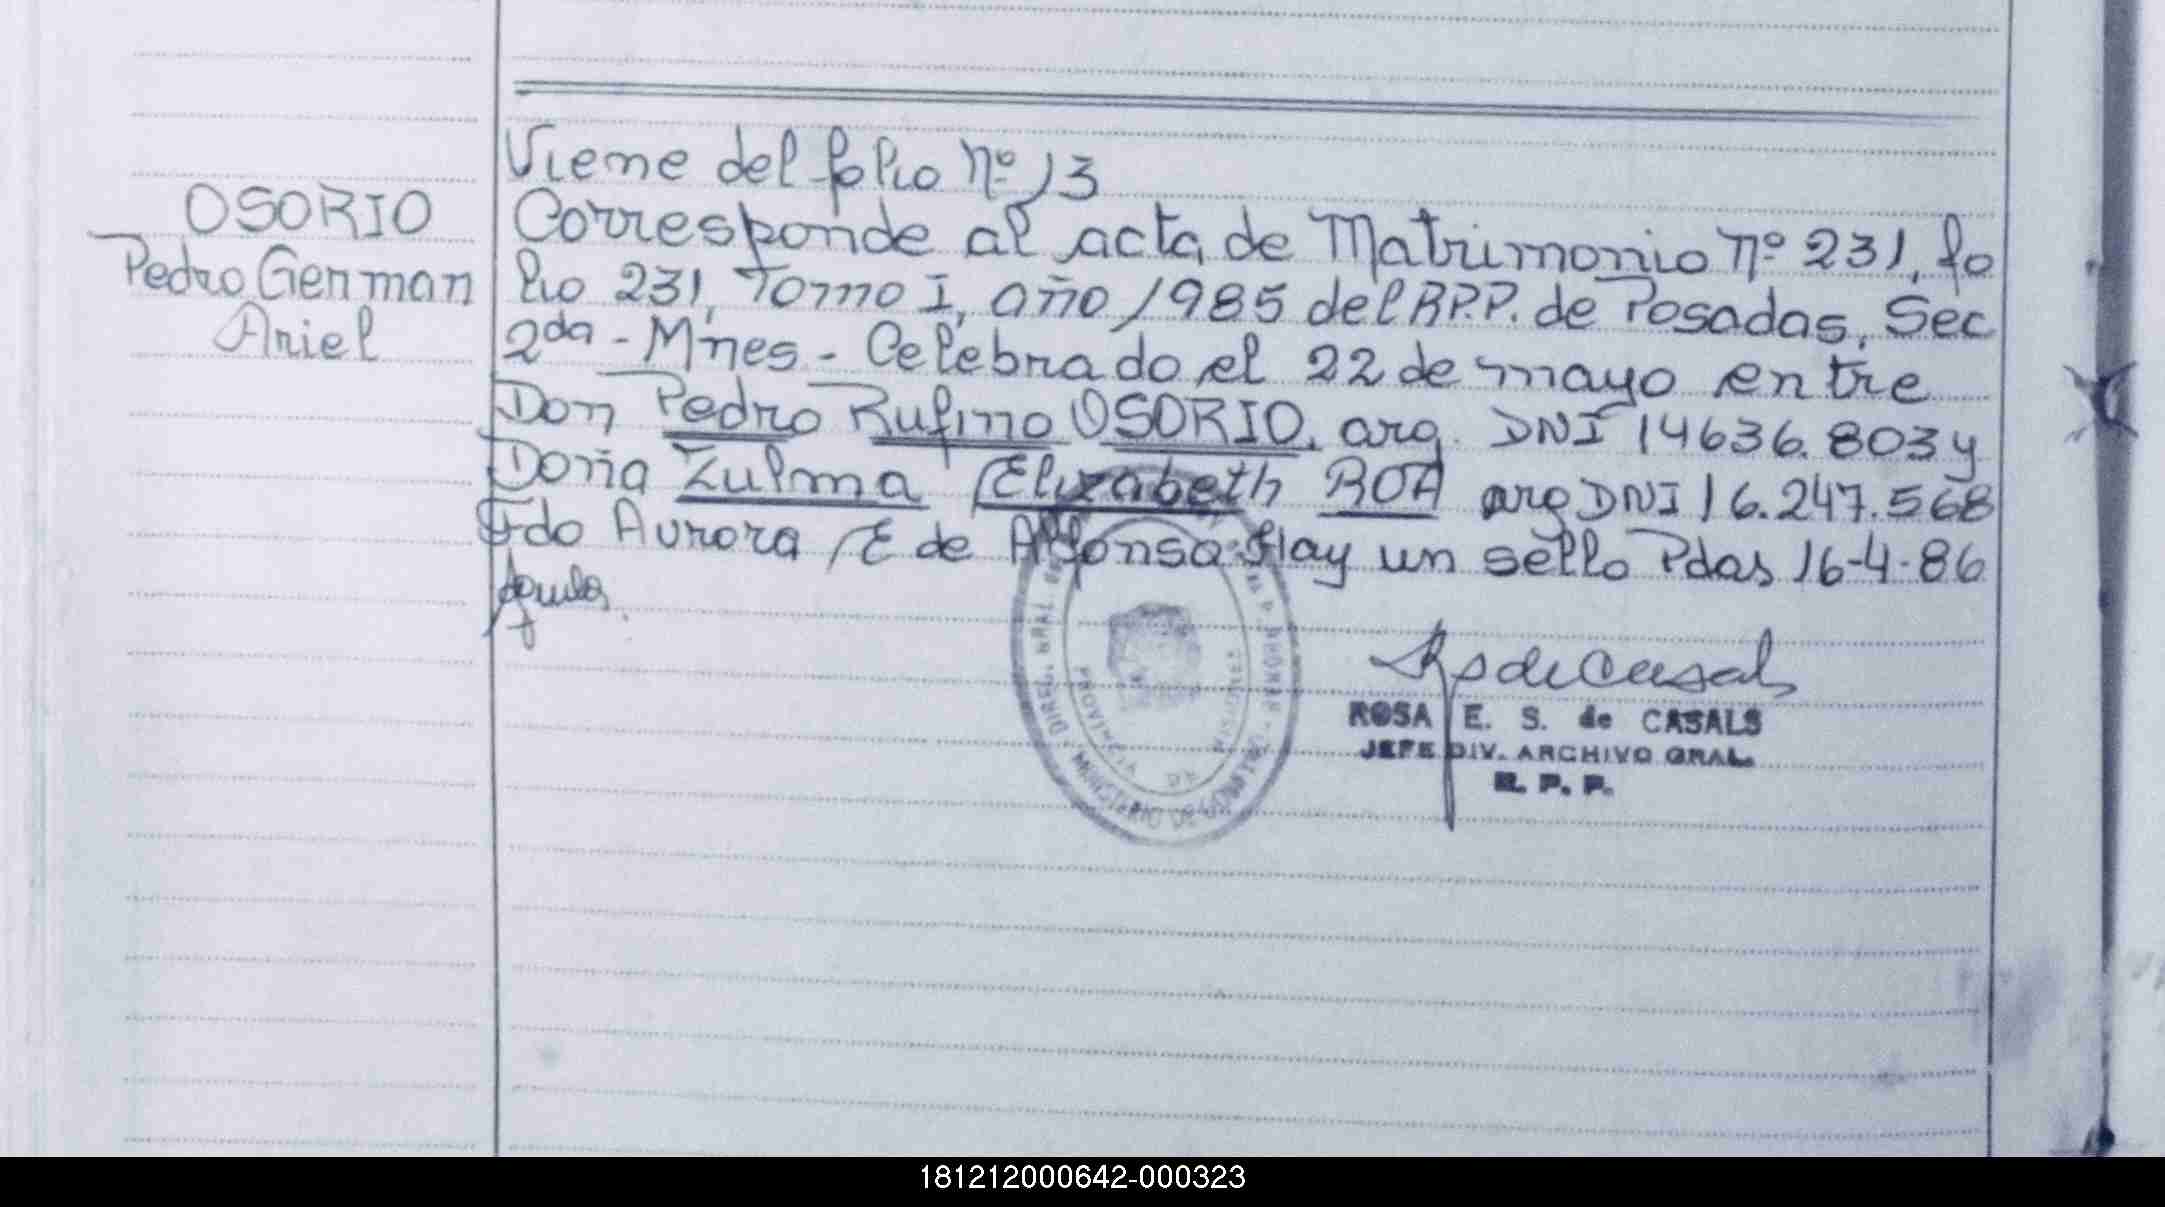 OSORIO
Pedro German
Ariel
Viene del folio Nº 13
Corresponde al acta de Matrimonio Nº 231, fo
lio 231, Tomo I, año 1985 del R.P.P. de Posadas, Sec
2da - Mnes - Celebrado el 22 de mayo entre
Don Pedro Rufino OSORIO, arg. DNI 14636.803 y
Doña Zulma Elizabeth ROA arg DNI 16.247.568
Fdo Aurora E de Alfonso. Hay un sello Pdas 16-4-86
ROSA E. S. de CASALS
JEFE DIV. ARCHIVO GRAL.
R. P. P.
PROVINCIA DE MISIONES
181212000642-000323